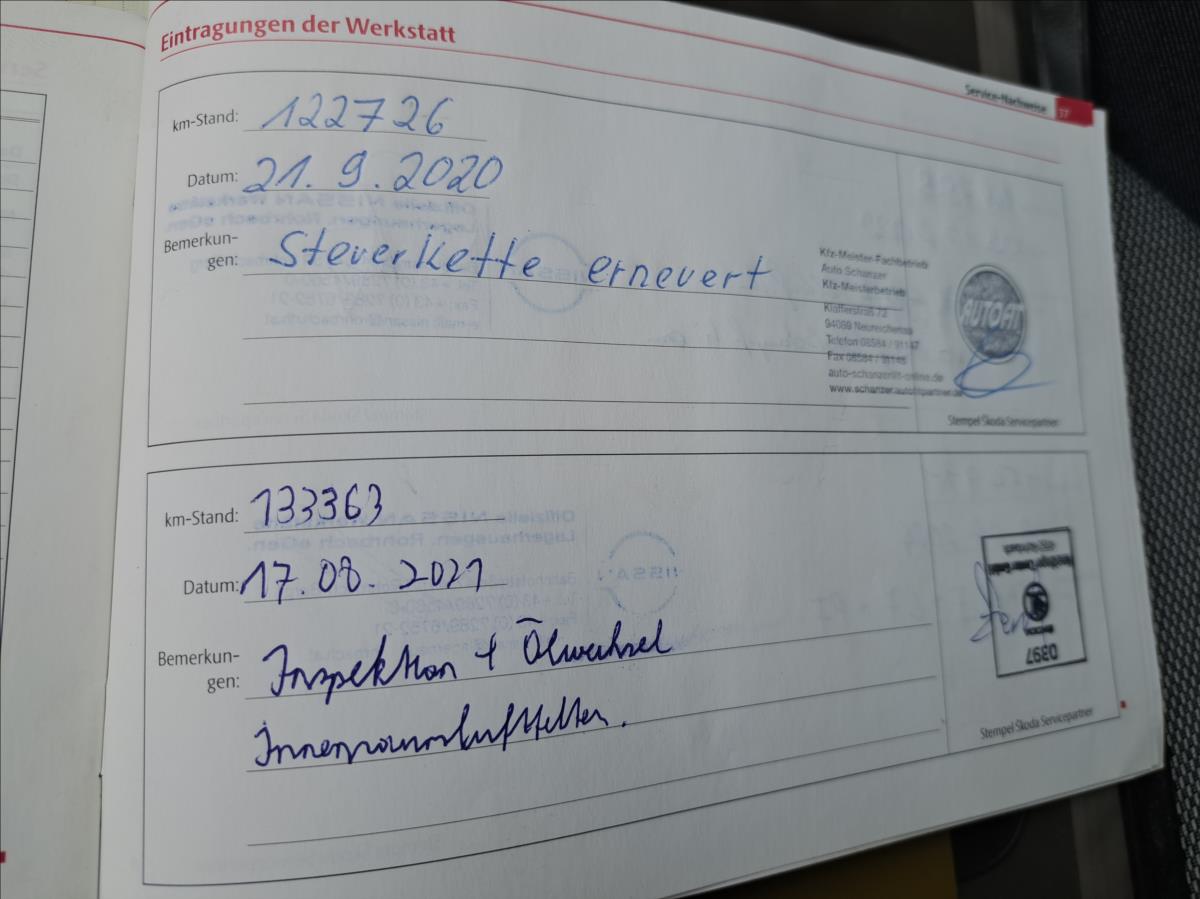 Eintragungen der Werkstatt
Service-Nachweise 17
km-Stand: 122726
Datum: 21.9.2020
Bemerkun-
gen: Steuerkette erneuert
Kfz-Meister-Fachbetrieb
Auto Schanzer
Kfz-Meisterbetrieb
Klafferstraß 72
94089 Neureichenau
Telefon 08584 / 91147
Fax 08584 / 91148
www.schanzer.autofitpartner.de
AUTOFIT
Stempel Škoda Servicepartner
km-Stand: 133363
Datum: 17.08.2021
Bemerkun-
gen: Inspektion + Ölwechsel
Innenraumluftfilter.
0397
Stempel Škoda Servicepartner